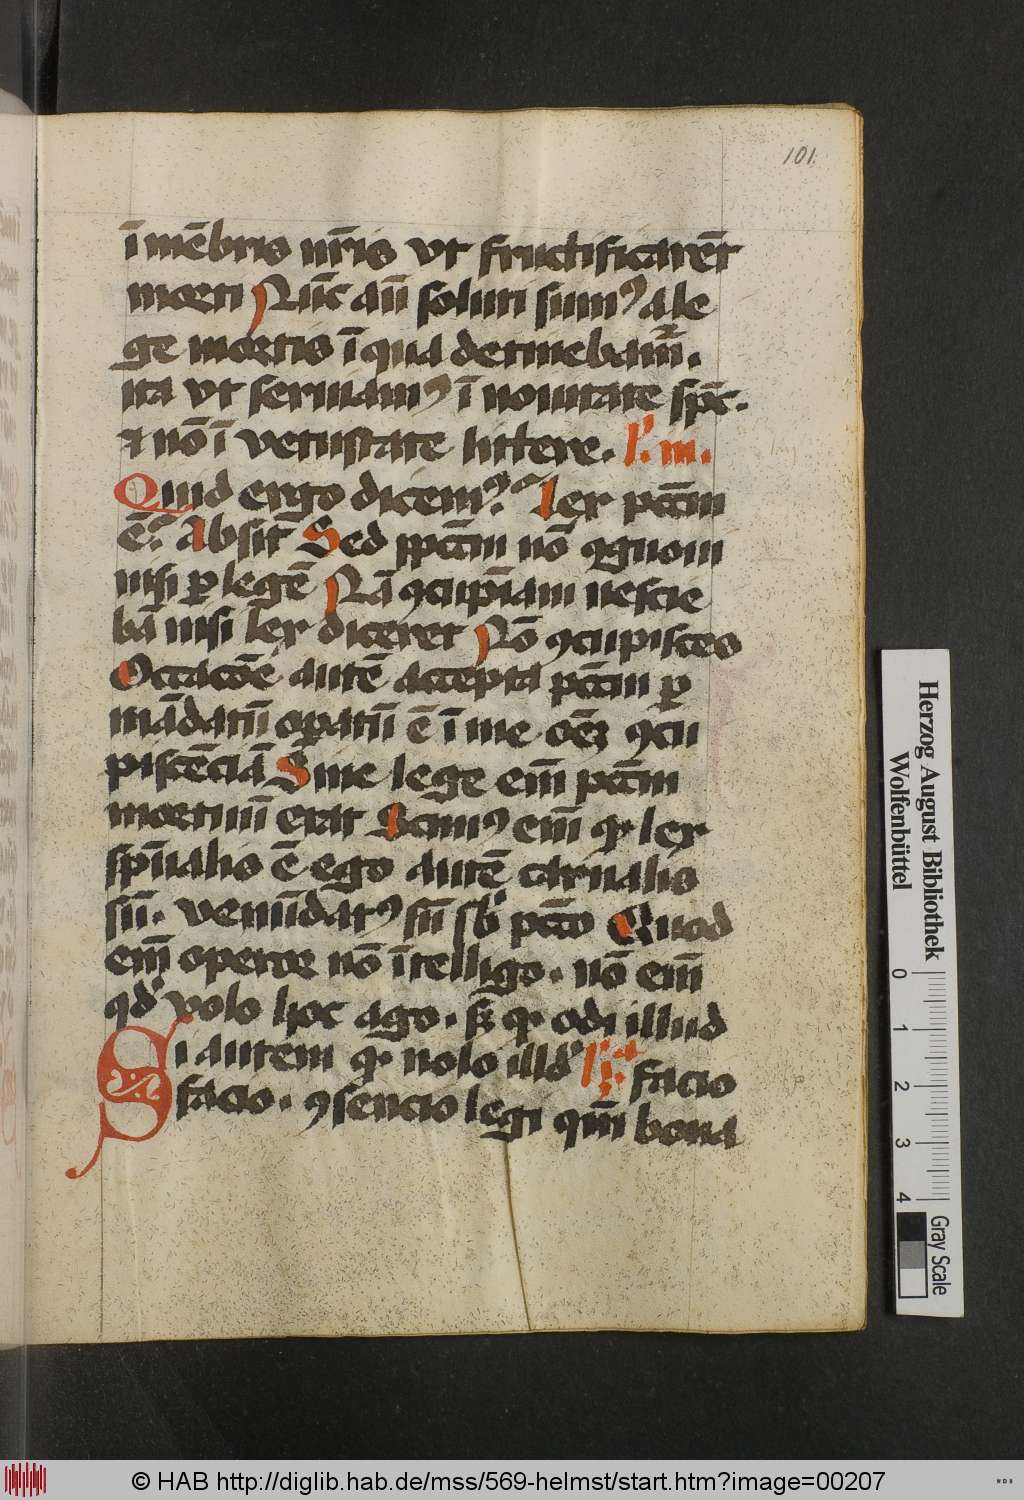 101
ī mēbris nr̄is vt fructificarēt
morti Nūc aū soluti sumꝰ a le
ge mortis ī qua detinebamᷣ.
ita vt seruiamꝰ ī nouitate sp̄c.
⁊ nō ī vetustate littere. l'. m.
Quid ergo dicemꝰ? lex pc̄cm
ē? Absit Sed ppc̄cm nō ꝯgnoui
nisi ꝑ legē Nā ꝯcupīam nescie
bā nisi lex diceret Nō ꝯcupisces
Occacōe autē accepta pc̄cm ꝑ
mādatū oꝑatū ē ī me oēꝫ ꝯcu
piscēciā Sine lege em̄ pc̄cm
mortuū erat Scimꝰ em̄ qꝛ lex
sp̄ualis ē ego autē carnalis
sū. venūdatꝰ sū sb' pc̄co Quod
em̄ operor nō ītelligo. nō em̄
qd' volo hoc ago. sꝫ qꝛ odi illud
Si autem qꝛ nolo illd' facio
facio. ꝯsencio legi qm̄ bona
Herzog August Bibliothek
Wolfenbüttel
0 1 2 3 4
Gray Scale
© HAB http://diglib.hab.de/mss/569-helmst/start.htm?image=00207